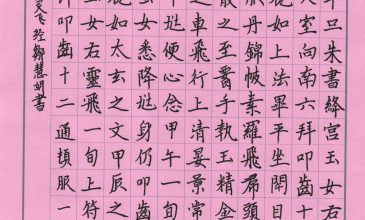 年旦朱書絳宮玉女右
入室向南六拜叩齒十
祝如上法畢平坐閉目
衣丹錦帔素羅飛帬頭
散之至胷手執玉精金
之車飛行上清晏景常
卒迯便心念甲午一旬
玉女悉降迯身仍叩齒
祝如太玄之文甲辰之
玉女右靈飛一旬上符
許叩齒十二通頓服一
鄒慧胡書